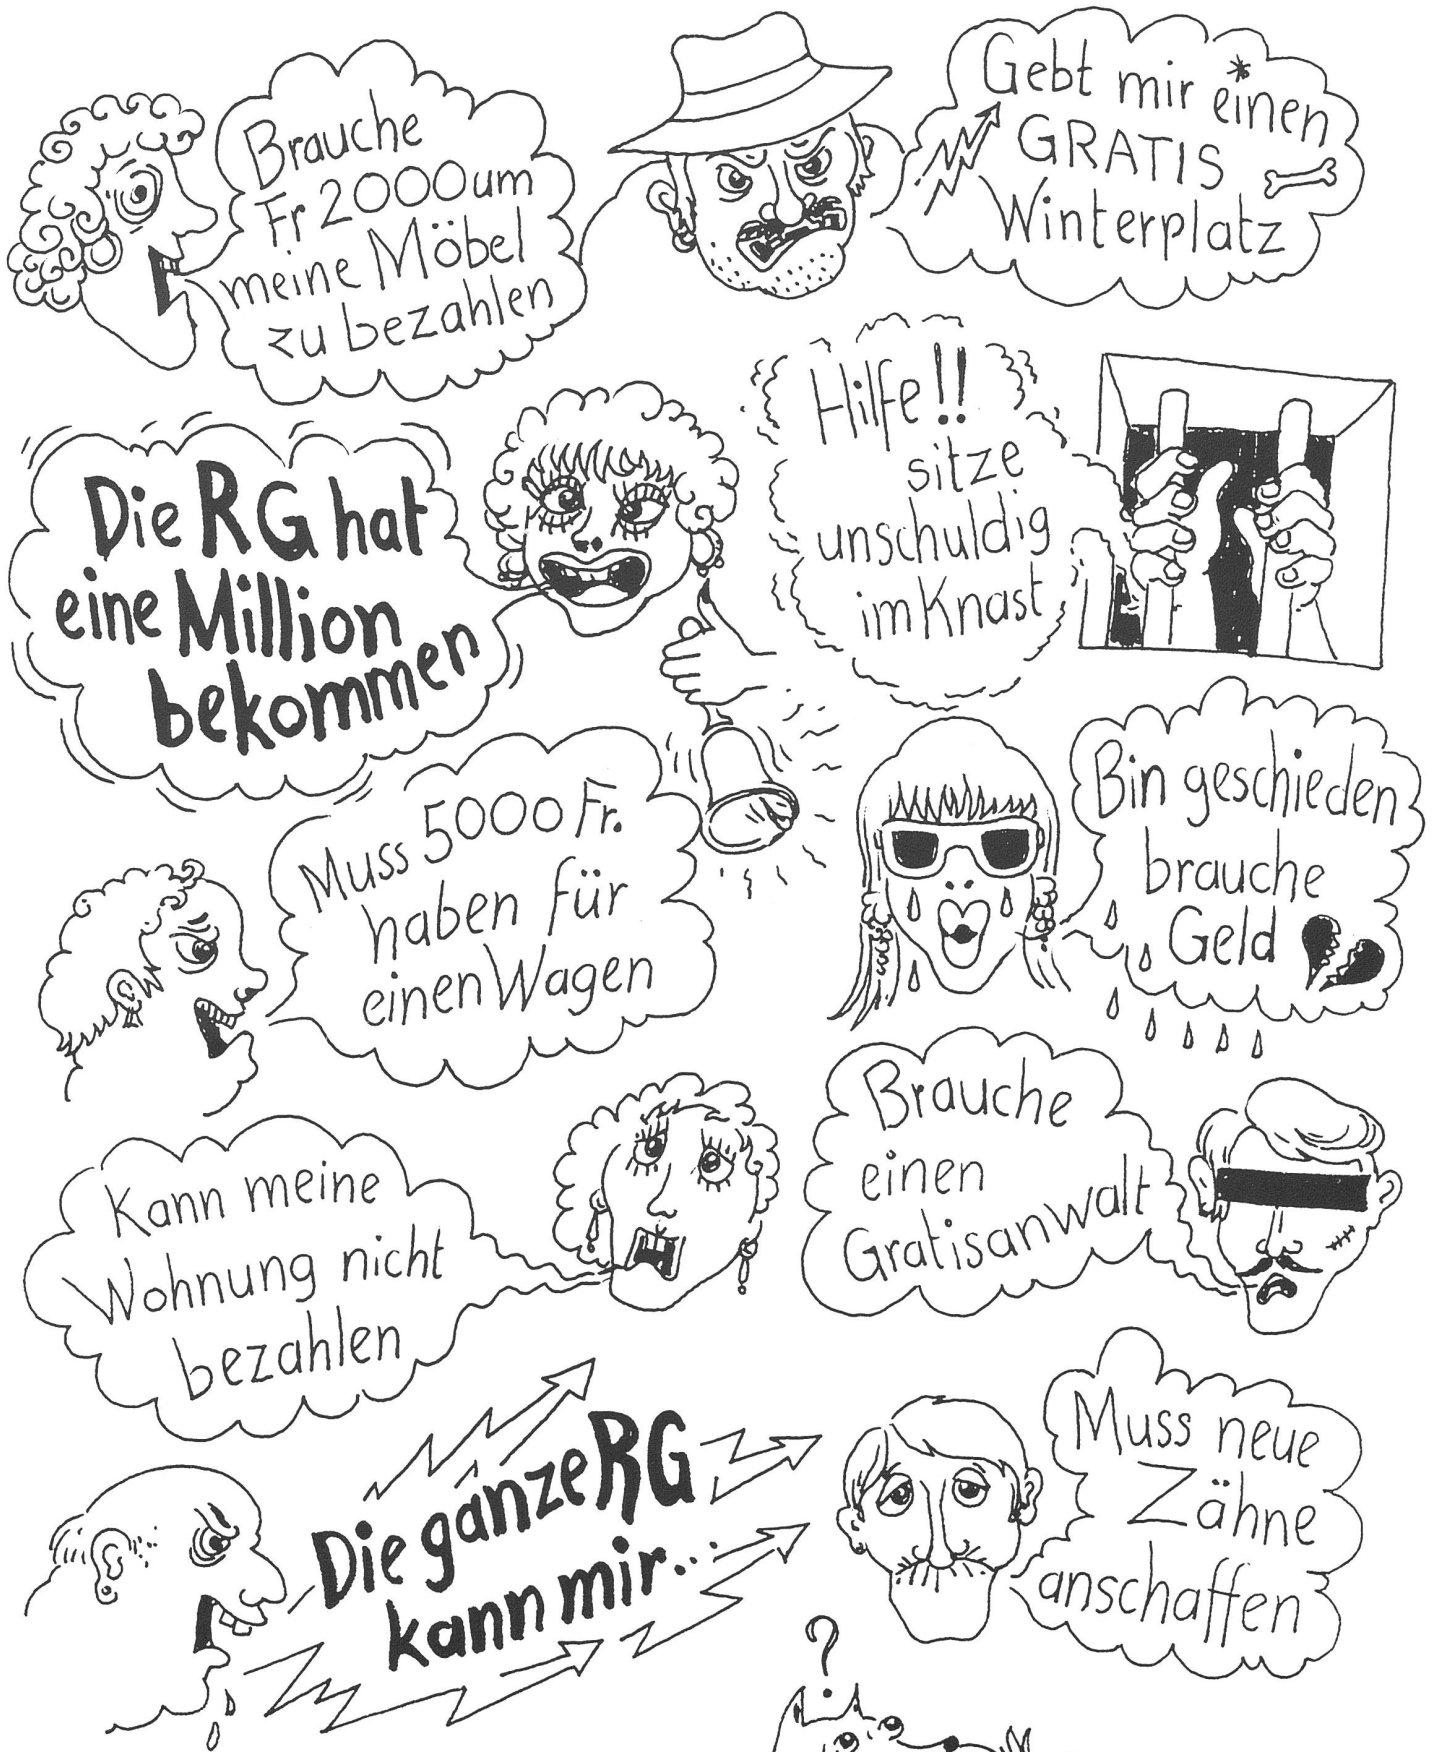 Brauche
Fr 2000 um
meine Möbel
zu bezahlen
Gebt mir einen
GRATIS
Winterplatz
Die RG hat
eine Million
bekommen
Hilfe!!
sitze
unschuldig
im Knast
Muss 5000 Fr.
haben für
einen Wagen
Bin geschieden
brauche
Geld
Kann meine
Wohnung nicht
bezahlen
Brauche
einen
Gratisanwalt
Die ganze RG
kann mir...
Muss neue
Zähne
anschaffen
?